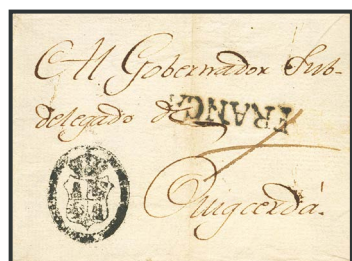 Al Gobernador Sub-
delegado de
FRANCA
Puigcerdá.